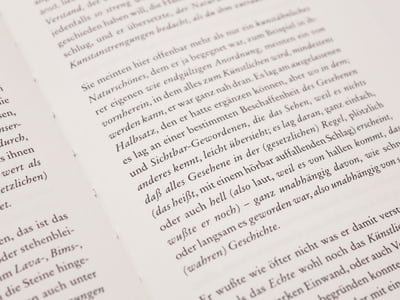 nser-
durch,
ihnen
wert als
etzlichen)
das ist das
der stehenblei-
Lava-, Bims-,
die Steine hinge-
auch unter
Verstand, der
jedenfalls so streng
geschieden haben will, die
schlug, und er übersetzte, der
Kunstanstrengungen bedacht, als da
Sie meinten hier offenbar mehr als nur ein kunstähnliches
Naturschönes, dem er ja begegnet war, zum Beispiel in ih-
rer eigenen wie endgültigen Anordnung, meinten ein von
vornherein, in dem alles zum Künstlichen wird, mindestens
werden kann, er war ganz nah dran. Es lag am ausgelassenen
Halbsatz, den er hatte ergänzen können, aber wo in dem,
es lag an einer bestimmten Beschaffenheit des Gesehenen
und Sichtbar-Gewordenen, die das Sehen, weil es nichts
anderes kennt, leicht übersieht; es lag daran, ganz einfach,
daß alles Gesehene in der (gesetzlichen) Regel, plötzlich
(das heißt, mit einem hörbar auffallenden Schlag) erscheint,
oder auch hell (also laut, weil es von hallen kommt, das
wußte er noch) – ganz unabhängig davon, wie schnell
oder langsam es geworden war, also unabhängig von
(wahren) Geschichte.
Er wußte wie öfter nicht was er damit
das Echte wohl noch das
Einwand, oder auch
begründen